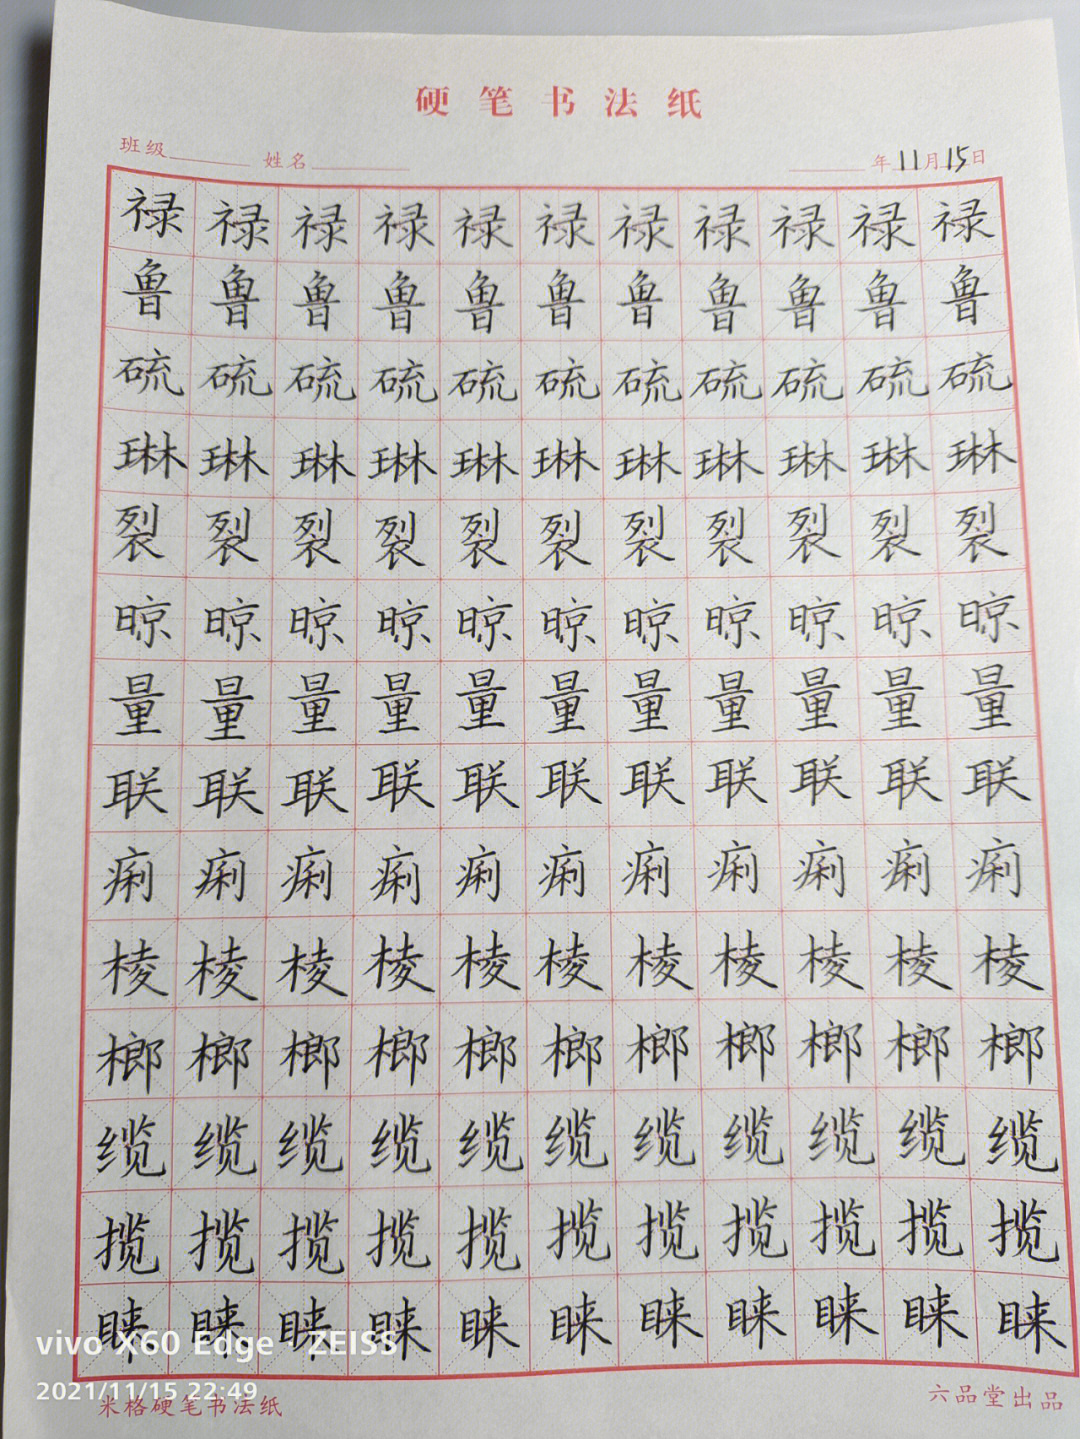 硬笔书法纸
班级 姓名 年11月15日
禄禄禄禄禄禄禄禄禄禄禄
鲁鲁鲁鲁鲁鲁鲁鲁鲁鲁鲁
硫硫硫硫硫硫硫硫硫硫硫
琳琳琳琳琳琳琳琳琳琳琳
裂裂裂裂裂裂裂裂裂裂裂
晾晾晾晾晾晾晾晾晾晾晾
量量量量量量量量量量量
联联联联联联联联联联联
痢痢痢痢痢痢痢痢痢痢痢
棱棱棱棱棱棱棱棱棱棱棱
榔榔榔榔榔榔榔榔榔榔榔
缆缆缆缆缆缆缆缆缆缆缆
揽揽揽揽揽揽揽揽揽揽揽
睐睐睐睐睐睐睐睐睐睐睐
vivo X60 Edge · ZEISS
2021/11/15 22:49
米格硬笔书法纸 六品堂出品